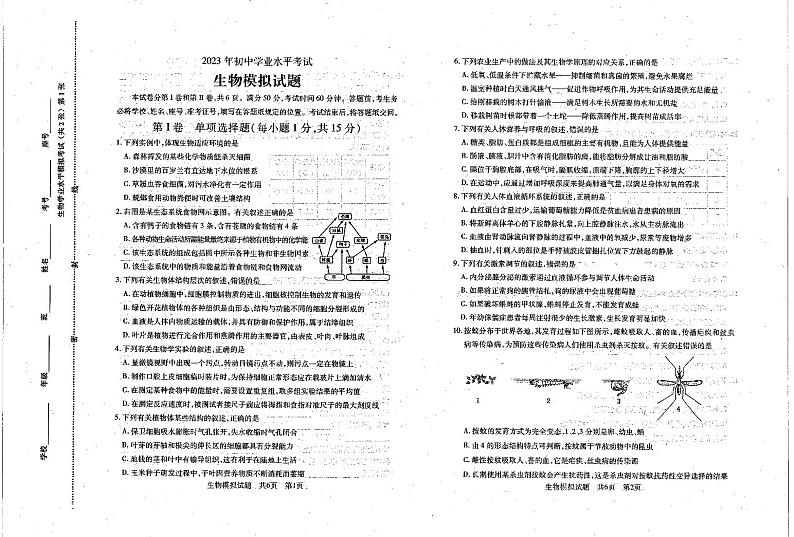 2023 年初中学业水平考试
生物模拟试题
本试卷分第 I 卷和第 II 卷,共 6 页。满分 50 分,考试时间 60 分钟。答题前,考生务
必将学校、姓名、座号、准考证号,填写在答题纸规定的位置。考试结束后,将答题纸交回。
第 I 卷 单项选择题(每小题 1 分,共 15 分)
1. 下列实例中,体现生物适应环境的是
A. 森林挥发的某些化学物质能杀灭细菌
B. 沙漠里的百岁兰有直达地下水位的根系
C. 草履虫吞食细菌,对污水净化有一定作用
D. 蚯蚓食用动物粪便时可改善土壤结构
2. 右图是某生态系统食物网示意图。有关叙述正确的是
A. 含有鸭子的食物链有 3 条,含有苍鹰的食物链有 4 条
B. 各种动物生命活动所需能量最终来源于植物有机物中的化学能
C. 该生态系统的组成包括图中所示各种生物和非生物因素
D. 该生态系统中的物质和能量沿着食物链和食物网流动
3. 下列有关生物体结构层次的叙述,错误的是
A. 在动植物细胞中,细胞膜控制物质的进出,细胞核控制生物的发育和遗传
B. 绿色开花植物体的各种组织是由形态、结构与功能不同的细胞分裂形成的
C. 血液是人体内物质运输的载体,并具有防御和保护作用,属于结缔组织
D. 叶片是植物进行光合作用和蒸腾作用的主要器官,由表皮、叶肉、叶脉组成
4. 下列有关生物学实验的叙述,正确的是
A. 显微镜视野中出现一个污点,转动目镜污点不动,则污点一定在物镜上
B. 制作口腔上皮细胞临时装片时,为保持细胞正常形态应在载玻片上滴加清水
C. 在测定某种食物中的能量时,需要设置重复组,取多组实验结果的平均值
D. 在测定反应速度时,被测试者接尺子前应将拇指和食指对准尺子的最大刻度线
5. 下列有关植物体某些结构的叙述,正确的是
A. 保卫细胞吸水膨胀时气孔张开,失水收缩时气孔闭合
B. 叶芽的芽轴和根尖的伸长区的细胞都具有分裂能力
C. 地钱的茎和叶中有输导组织,这有利于在陆地上生活
D. 玉米种子萌发过程中,子叶因营养物质不断消耗而萎缩
生物模拟试题 共6页 第1页
6. 下列农业生产中的做法及其生物学原理的对应关系,正确的是
A. 低氧、低温条件下贮藏水果——抑制细菌和真菌的繁殖,避免水果腐烂
B. 温室种植时白天通风换气——促进作物呼吸作用,为其生命活动提供充足能量
C. 给刚移栽的树木打针输液——满足树木生长所需要的水和无机盐
D. 移栽树苗时根部带着一个土坨——降低蒸腾作用,提高树苗成活率
7. 下列有关人体营养与呼吸的叙述,错误的是
A. 糖类、脂肪、蛋白质都是组成细胞的主要有机物,且能为人体提供能量
B. 肠液、胰液、胆汁中含有消化脂肪的酶,能将脂肪分解成甘油和脂肪酸
C. 膈位于胸腔底部,在吸气时,膈肌收缩,顶端下降,胸廓的上下径增大
D. 在运动中,应通过增加呼吸深度来提高肺通气量,以满足身体对氧的需求
8. 下列有关人体血液循环系统的叙述,正确的是
A. 血红蛋白含量过少,运输葡萄糖能力降低是贫血病患者患病的原因
B. 将新鲜离体羊心的下腔静脉扎紧,向上腔静脉注水,水从主动脉流出
C. 血液由肾动脉流向肾静脉的过程中,血液中的氧减少,尿素等废物增多
D. 抽血时,针刺入的部位是手臂被胶皮管捆扎位置下方鼓起的静脉
9. 下列有关激素调节的叙述,错误的是
A. 内分泌腺分泌的激素通过血液循环参与调节人体生命活动
B. 如果将正常狗的胰管结扎,狗的尿液中会出现葡萄糖
C. 如果破坏蝌蚪的甲状腺,蝌蚪停止发育,不能发育成蛙
D. 年幼侏儒症患者每周注射很少的生长激素,生长发育明显加快
10. 按蚊分布于世界各地,其发育过程如下图所示,雌蚊吸取人、畜的血,传播疟疾和丝虫
病等传染病,为预防这些传染病人们使用杀虫剂杀灭按蚊。有关叙述错误的是
1 2 3 4
A. 按蚊的发育方式为完全变态,1、2、3 分别是卵、幼虫、蛹
B. 由 4 的形态结构特点可判断,按蚊属于节肢动物中的昆虫
C. 雌性按蚊吸取人、畜的血,它是疟疾、丝虫病的传染源
D. 长期使用某杀虫剂按蚊会产生抗药性,这是杀虫剂对按蚊抗药性变异选择的结果
生物模拟试题 共6页 第2页
生物学业水平模拟考试(共 2 张)第 1 张
学校
年级
班
姓名
考号
座号